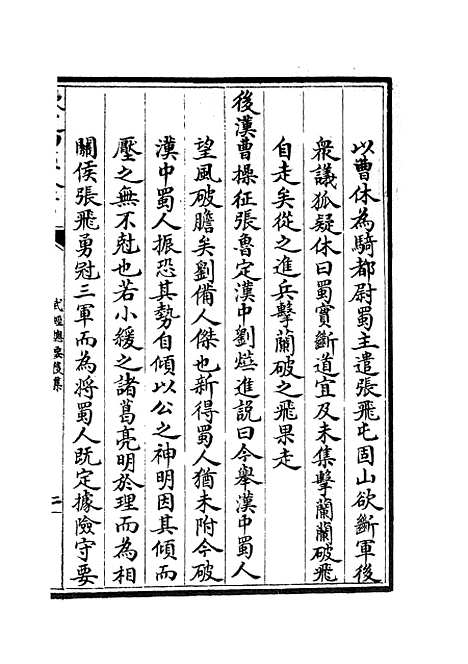 以曹休為騎都尉蜀主遣張飛屯固山欲斷軍後
衆議狐疑休曰蜀實斷道宜及未集擊蘭蘭破飛
自走矣從之進兵擊蘭破之飛果走
後漢曹操征張魯定漢中劉燁進説曰今舉漢中蜀人
望風破膽矣劉備人傑也新得蜀人猶未附今破
漢中蜀人振恐其勢自傾以公之神明因其傾而
壓之無不尅也若小緩之諸葛亮明於理而為相
關侯張飛勇冠三軍而為將蜀人既定據險守要
武經總要後集
二